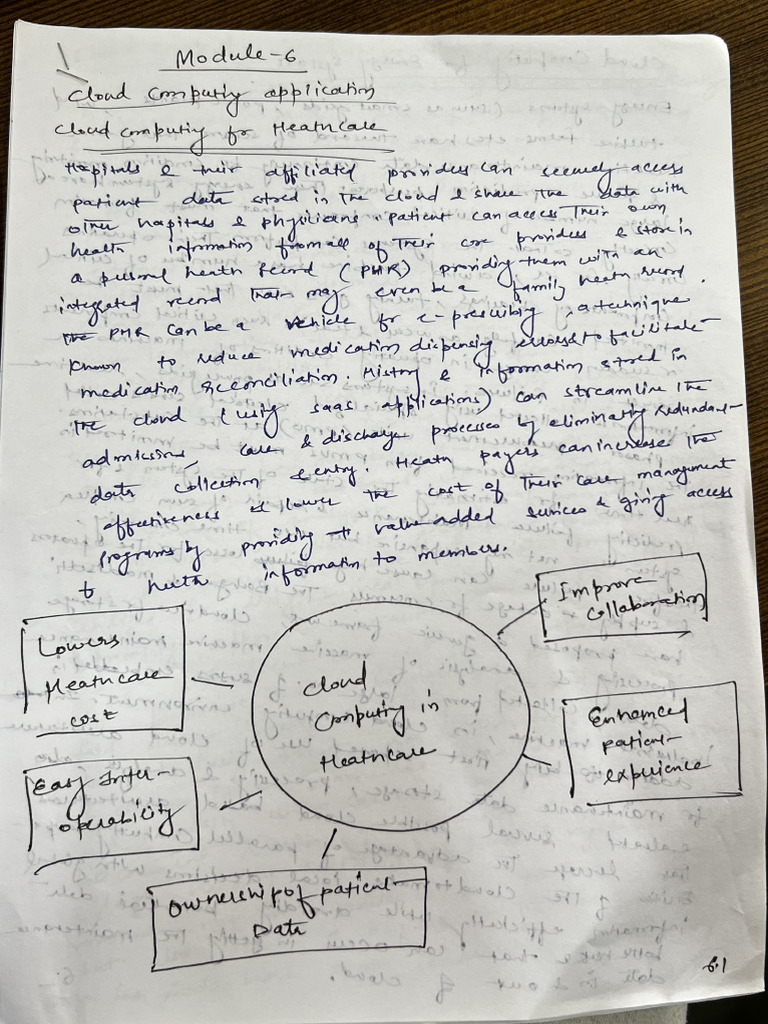 Module-6
Cloud Computing application
Cloud computing for Healthcare
Hospitals & their affiliated providers can securely access
patient data stored in the cloud & share the data with
other hospitals & physicians. patient can access their own
health information from all of their care providers & store in
a personal health record (PHR) providing them with an
integrated record that may even be a family health record.
The PHR can be a vehicle for e-prescribing, a technique
known to reduce medication dispensing errors & to facilitate
medication reconciliation. History & information stored in
the cloud (using saas applications) can streamline the
admissions, care & discharge processes by eliminating redundant
data collection & entry. Health payers can increase the
effectiveness & lower the cost of their care management
programs by providing value added services & giving access
to health information to members.
Improve
Collaboration
Lowers
Healthcare
cost
Cloud
Computing in
Healthcare
Enhanced
patient
experience
Easy Inter-
operability
Ownership of patient
Data
6.1